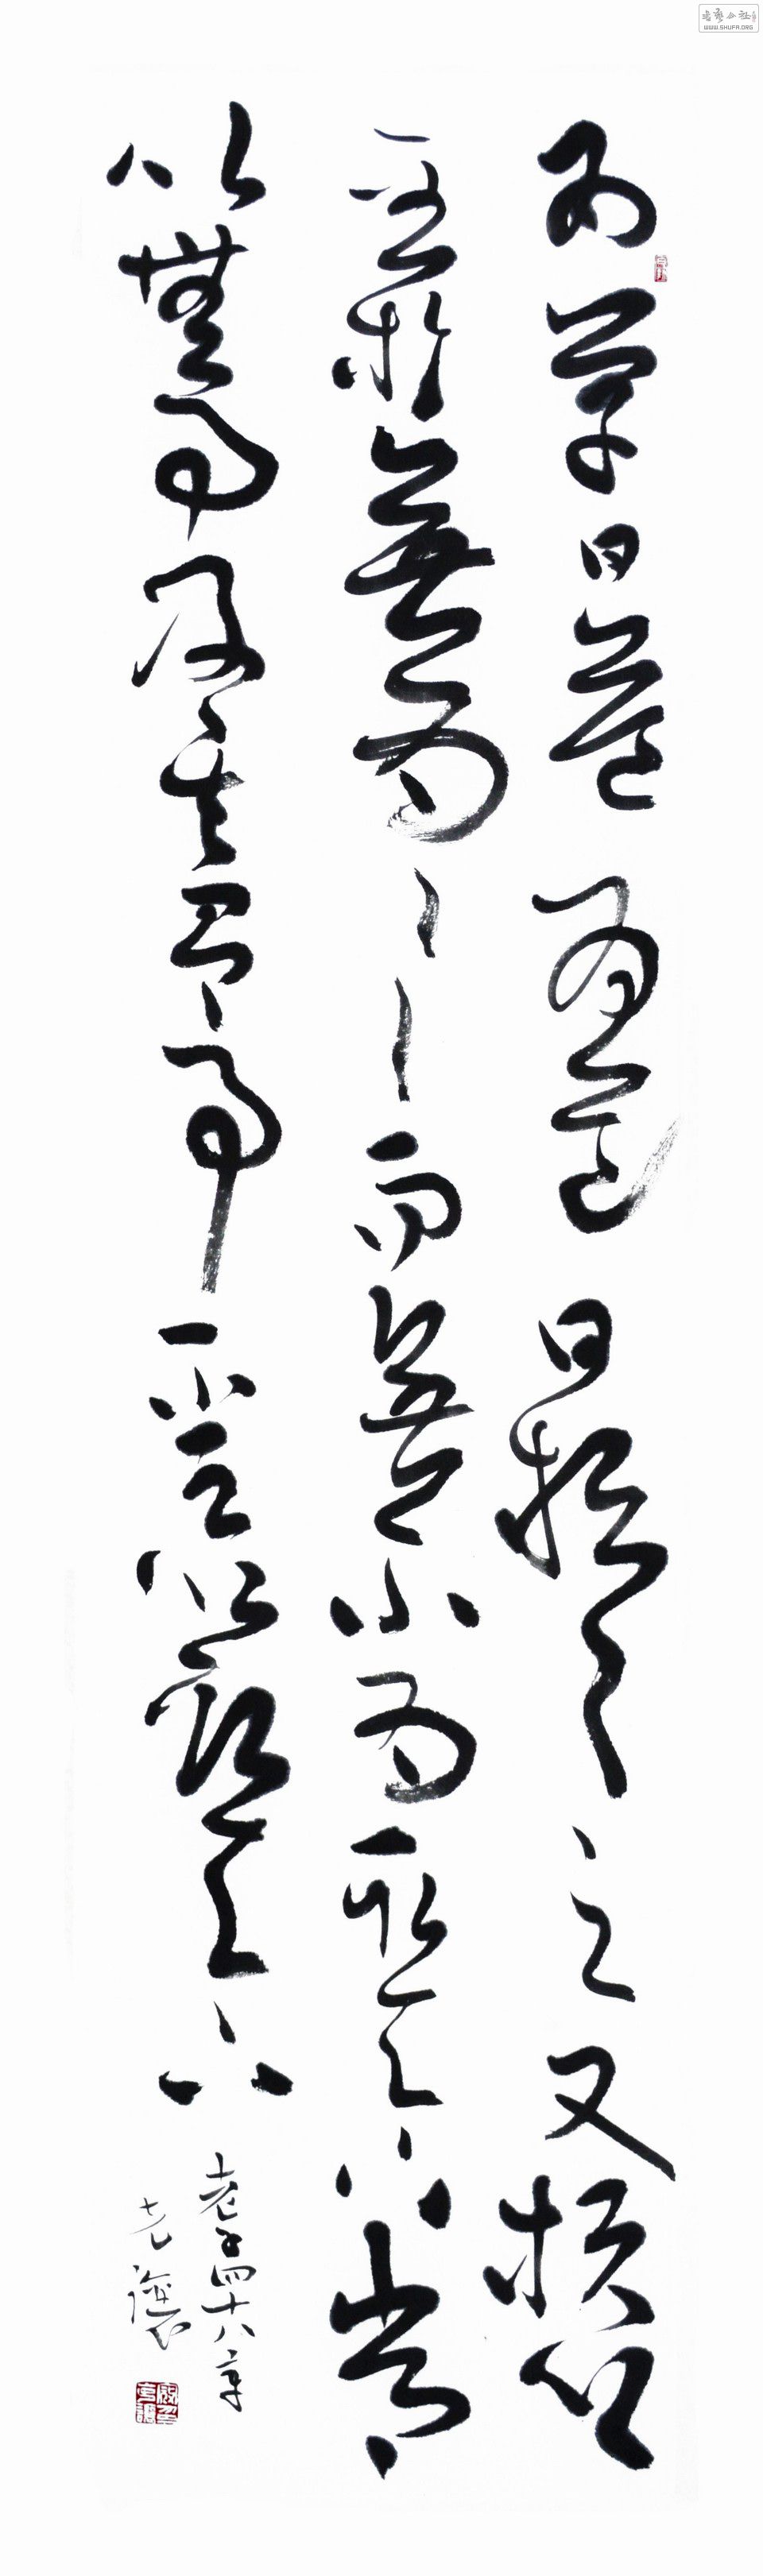 為學日益為道日損〻之又損以
至於無為〻〻而無不為取天下常
以無事及其有事不足以取天下
老子四十八章
WWW.SHUFA.ORG